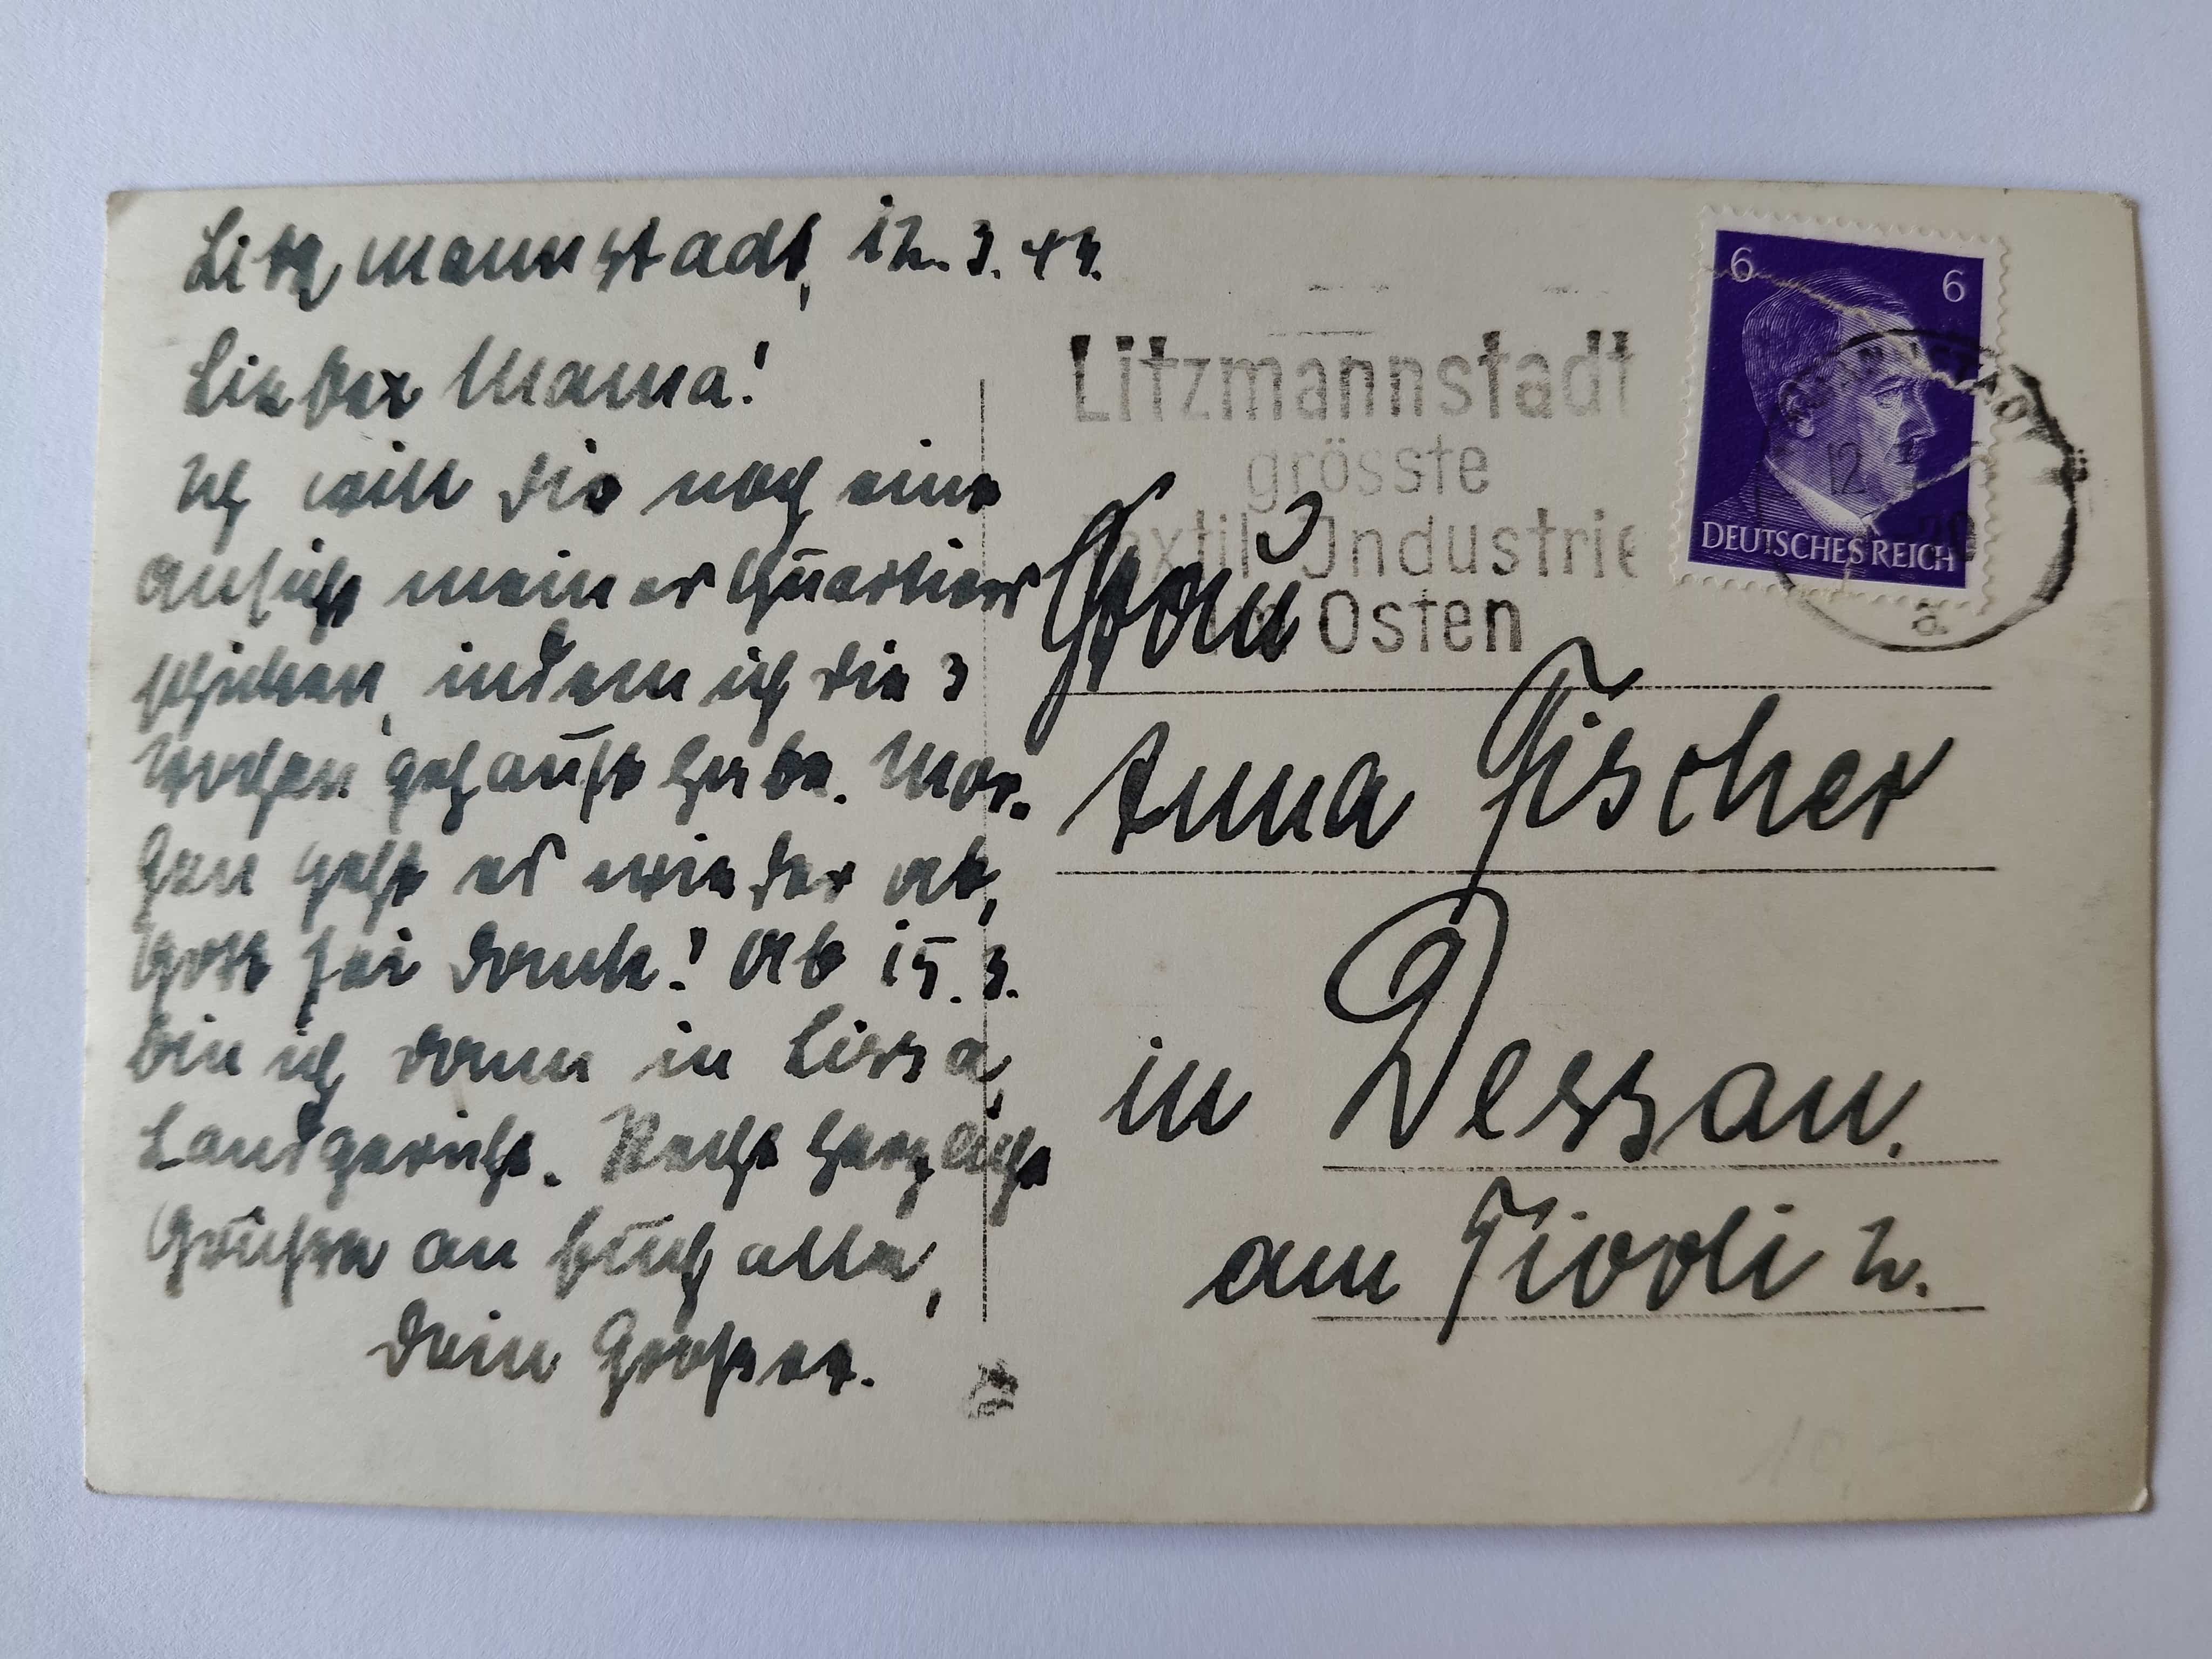 Litzmannstadt, 12.3.44.
Liebe Mama!
Ich will Dir noch eine
Ansicht meines Quartiers
schicken, indem ich die 3
Wochen gehaust habe. Mor-
gen geht es wieder ab,
Gott sei Dank! Ab 15.3.
bin ich dann in Lissa,
Landgericht. Recht herzliche
Grüße an Euch alle,
Dein Großer.
Litzmannstadt
grösste
Textil-Industrie
im Osten
6 6
DEUTSCHES REICH
12
20
a
Frau
Anna Fischer
in Dessau.
am Tivoli 2.
10,-